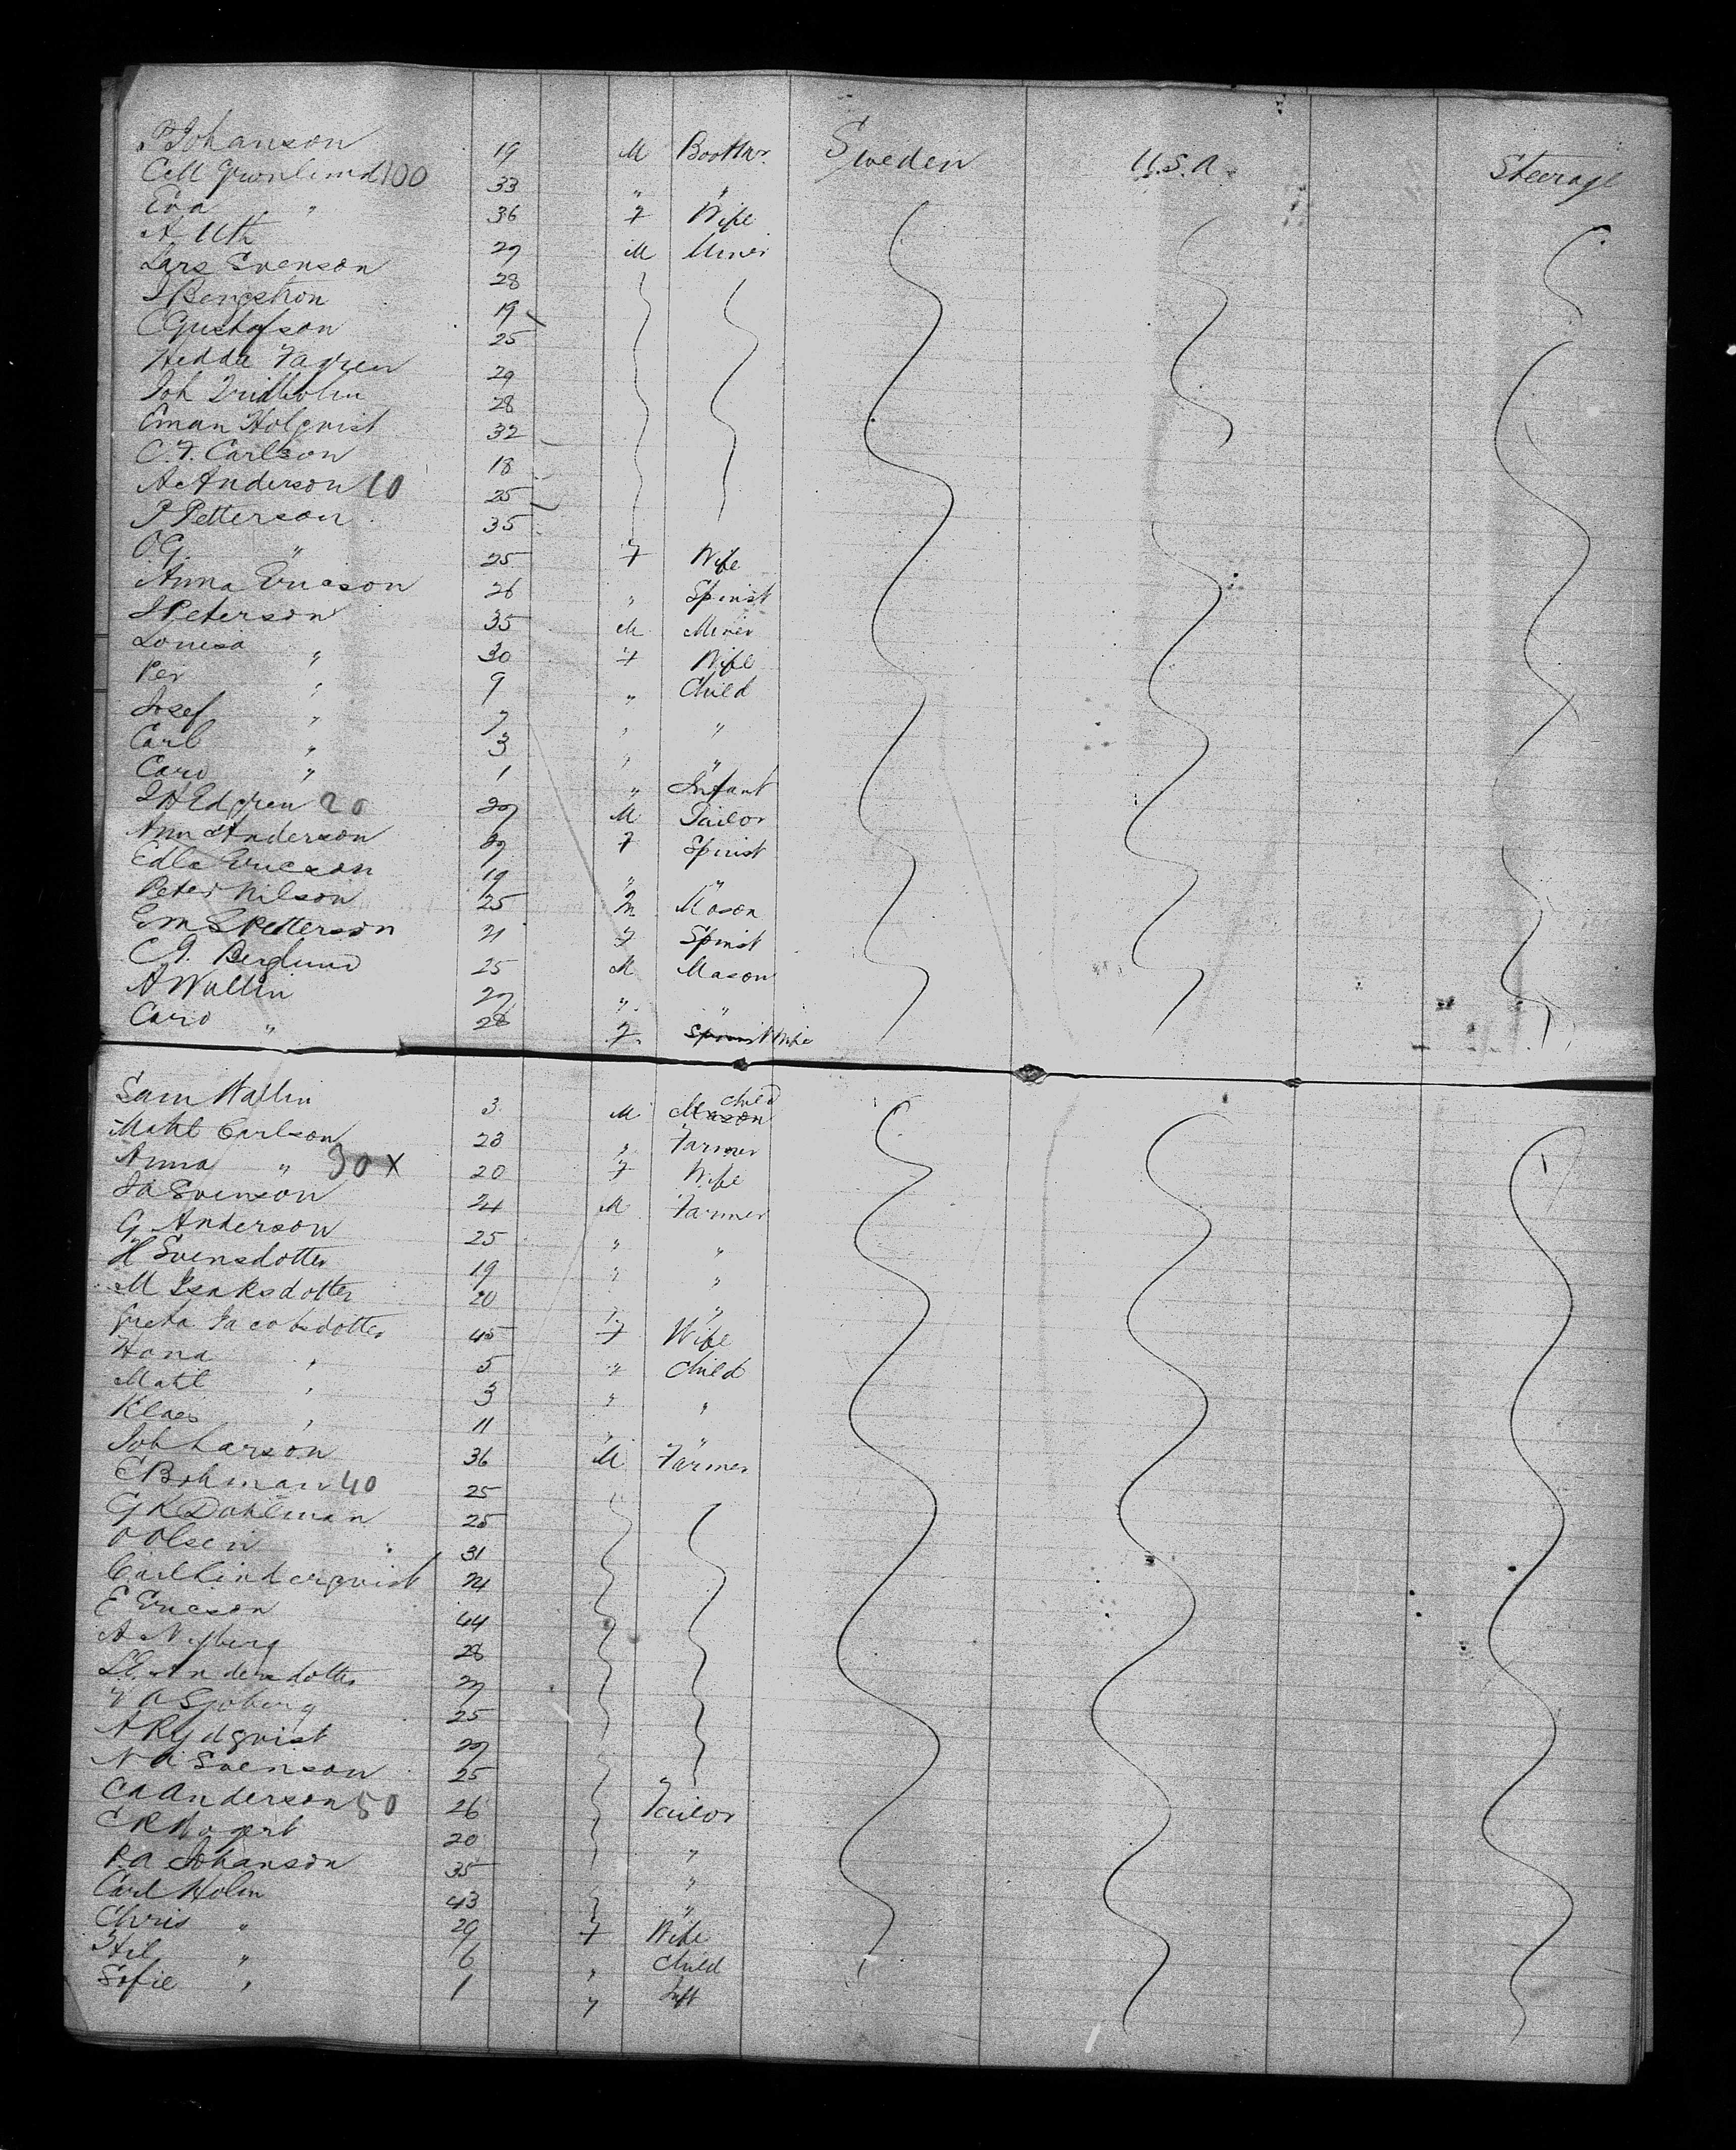 P Johanson 19 M Bootmr. Sweden U.S.A Steerage
C M Gronlund 100 33 " "
Eva " 36 F Wife
A Uth 27 M Miner
Lars Svenson 28
J Bengston 19
C Gustafson 25
Hedda Fagren 29
Joh 28
Eman Holqvist 32
C. F. Carlson 18
A Anderson 10 25
P Petterson 35
O G. " 25 F Wife
Anna Ericson 26 " Spinst
J Peterson 35 M Miner
Louisa " 30 F Wife
Per " 9 " Child
Josef " 7 " "
Carl " 3 " "
Caro " 1 " Infant
J A Edgren 20 27 M Tailor
Ann Anderson 27 F Spinst
Edla Ericson 19 " "
Peter Nilson 25 M Mason
Em S Petterson 21 F Spinst
C J. Berglund 25 M Mason
A Wallin 27 " "
Caro " 28 F Spinst Wife
Sam Wallin 3 M Mason Child
Matil Carlson 28 " Farmer
Anna " 30 X 20 F Wife
Ja Svenson 24 M Farmer
G Anderson 25 " "
H Svensdotter 19 " "
M Isaksdotter 20 " "
Greta Jacobsdotter 45 F Wife
Hana " 5 " Child
Matil " 3 " "
Klaes " 11 " "
Joh Larson 36 M Farmer
C Bohman 40 25
G K Dahlman 25
O Olsen 31
Carl Linderqvist 24
E Ericson 44
A Nyberg 28
L E Andersdotter 27
F A Sjoberg 25
A Rydqvist 27
N A Svenson 25
C A Anderson 50 26 Tailor
C R 20 "
P. A Johanson 35 "
Carl Holm 43 "
Chris " 29 F Wife
Hil " 6 " Child
Sofie " 1 " Inft